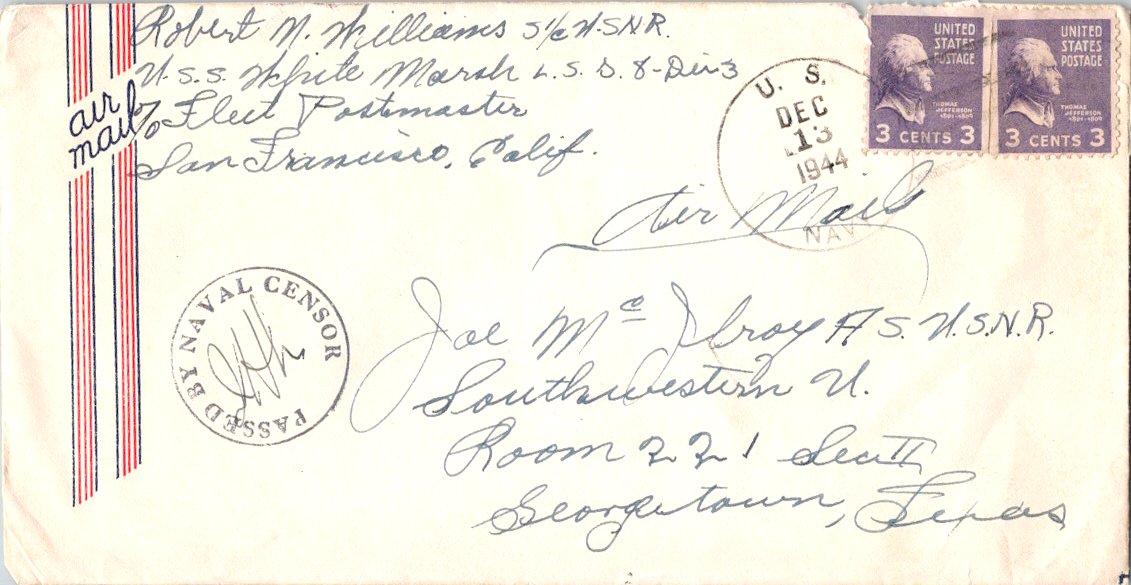 Robert N. Williams S1/c U.S.N.R.
U.S.S. White Marsh L.S.D. 8-Div 3
c/o Fleet Postmaster
San Francisco, Calif.
air
mail
U. S.
DEC
13
1944
NAVY
UNITED
STATES
POSTAGE
THOMAS
JEFFERSON
1801-1809
3 CENTS 3
UNITED
STATES
POSTAGE
THOMAS
JEFFERSON
1801-1809
3 CENTS 3
Air Mail
PASSED BY NAVAL CENSOR
Joe McIlroy A.S. U.S.N.R.
Southwestern U.
Room 221 Sec II
Georgetown, Texas